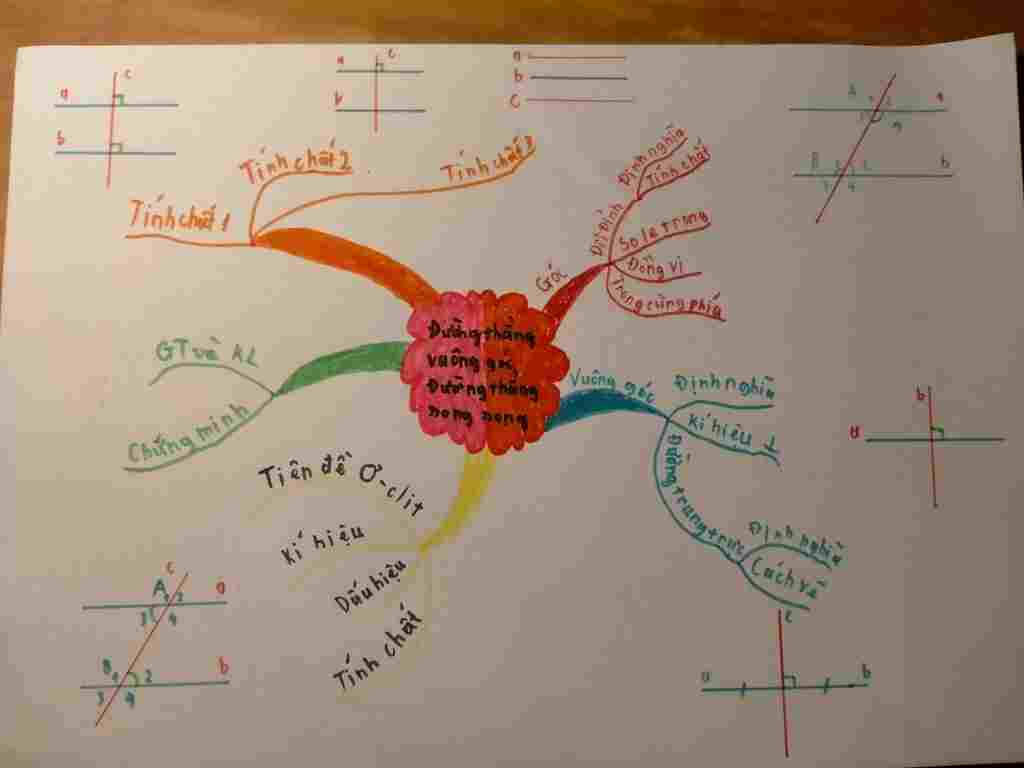 a
c
b
a
c
b
a
b
c
A
1
2
a
b
4
Tính chất 2
Tính chất 3
Tính chất 1
Góc
Đối đỉnh
Định nghĩa
Tính chất
So le trong
Đồng vị
Trong cùng phía
Đường thẳng
vuông góc,
Đường thẳng
song song
GT và KL
Chứng minh
Vuông góc
Định nghĩa
Kí hiệu ⊥
Đường trung trực
Định nghĩa
Cách vẽ
b
a
Tiên đề Ơ-clit
Kí hiệu
Dấu hiệu
Tính chất
c
A
1
2
a
3
4
B
1
2
b
3
4
c
a
b